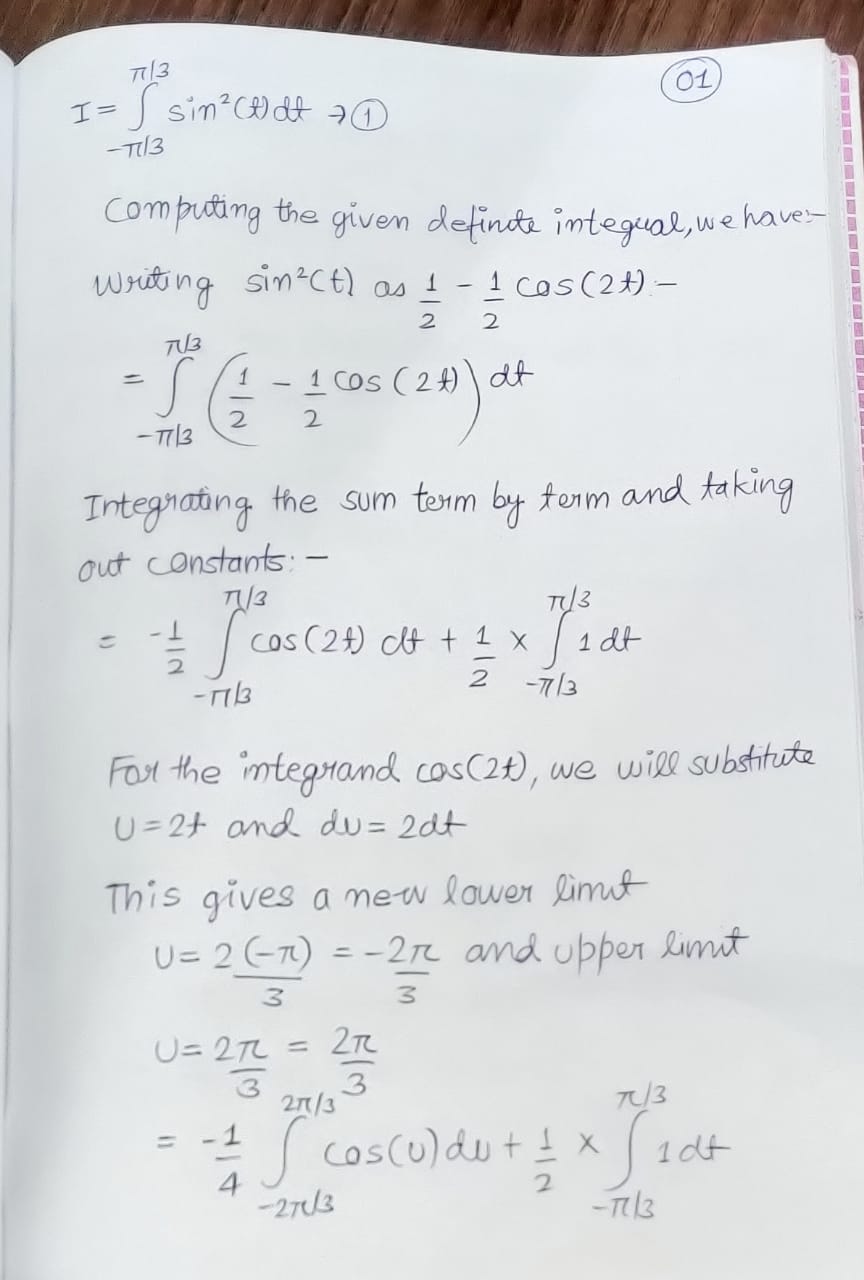 01
π/3
I = ∫ sin²(t)dt → ①
-π/3
Computing the given definite integral, we have:-
Writing sin²(t) as 1/2 - 1/2 cos(2t):-
π/3
= ∫ (1/2 - 1/2 cos(2t)) dt
-π/3
Integrating the sum term by term and taking
out constants:-
π/3 π/3
= -1/2 ∫ cos(2t) dt + 1/2 × ∫ 1 dt
-π/3 -π/3
For the integrand cos(2t), we will substitute
U = 2t and du = 2dt
This gives a new lower limit
U = 2(-π)/3 = -2π/3 and upper limit
U = 2π/3 = 2π/3
2π/3 π/3
= -1/4 ∫ cos(u) du + 1/2 × ∫ 1 dt
-2π/3 -π/3